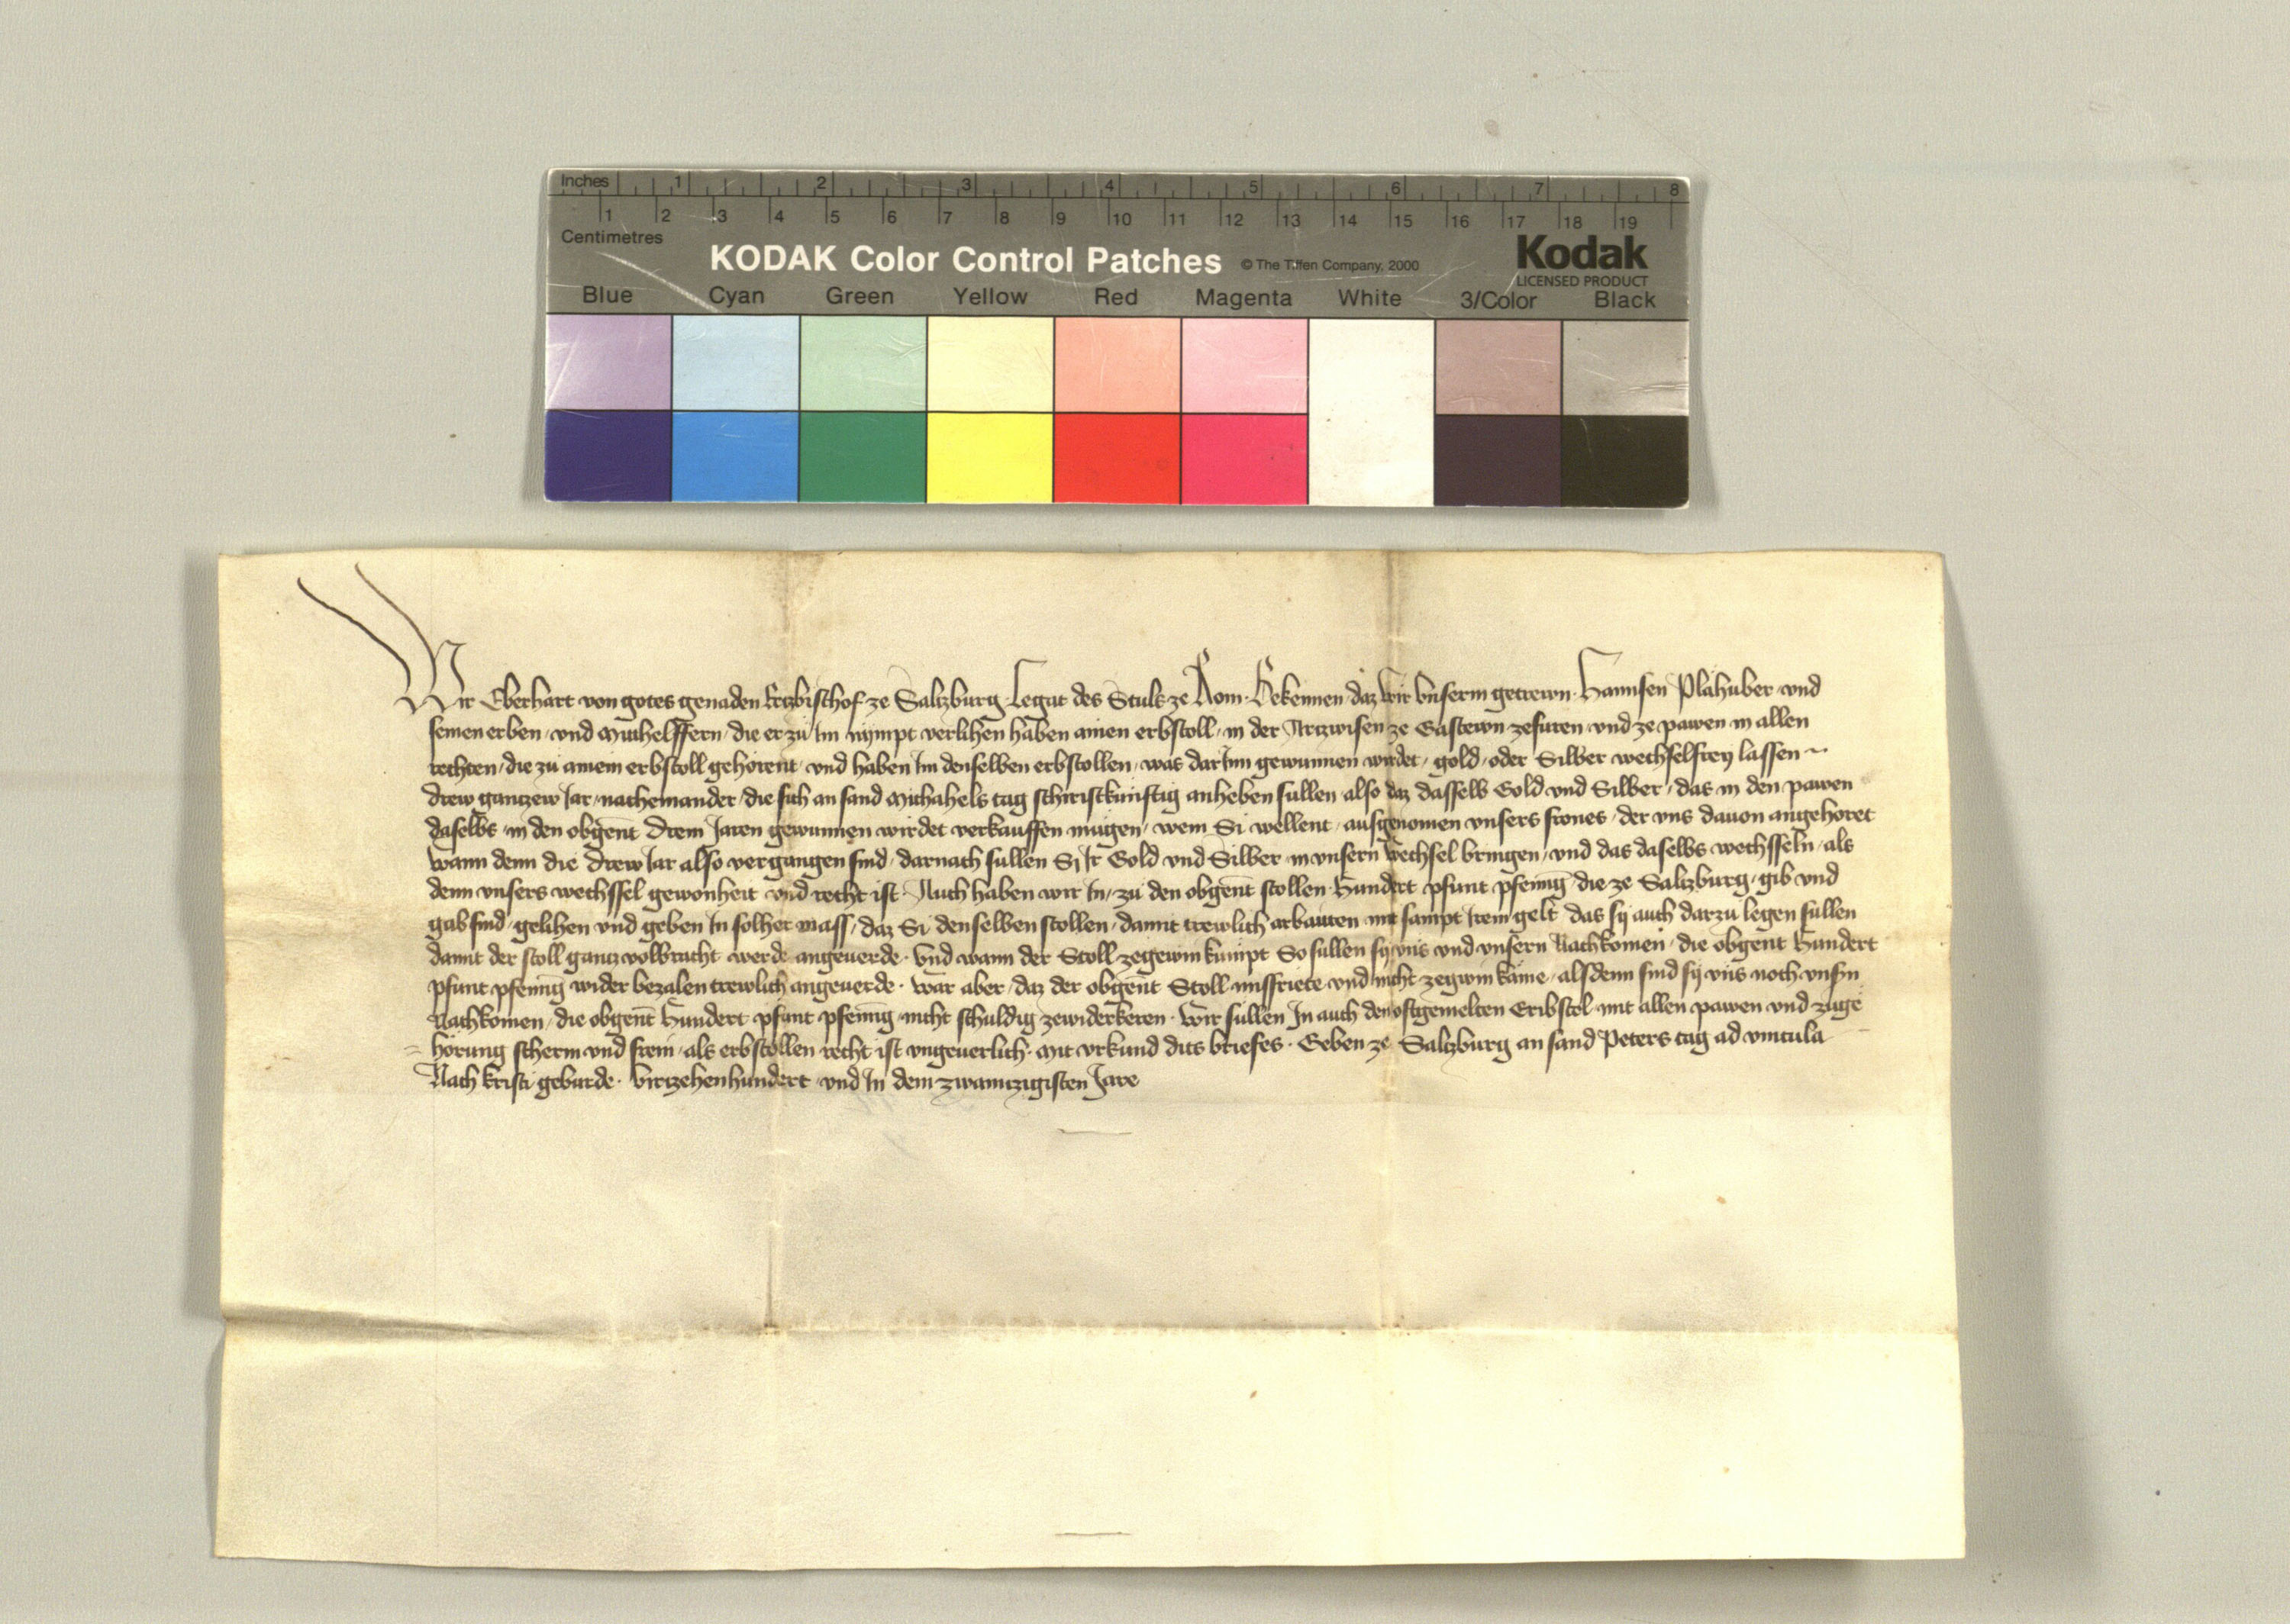 Inches 1 2 3 4 5 6 7 8
1 2 3 4 5 6 7 8 9 10 11 12 13 14 15 16 17 18 19
Centimetres
KODAK Color Control Patches © The Tiffen Company, 2000 Kodak
LICENSED PRODUCT
Blue Cyan Green Yellow Red Magenta White 3/Color Black
Wir Eberhart von gotes genaden Ertzbischof ze Saltzburg Legat des Stuls ze Rom Bekennen daz wir vnserm getrewn Hannsen Plahuber vnd
seinen erben vnd Mithelffern die er zu Im nympt verlihen haben ainen erbstoll in der Artzwisen ze Gastewn zefuren vnd ze pawen in allen
rechten die zu ainem erbstoll gehorent vnd haben Im denselben erbstollen was darInn gewunnen wirdet gold oder Silber wechselfrey lassen
drew gantzew Jar nacheinander die sich an sand Michahels tag schiristkunftig anheben sullen also daz dasselb Gold vnd Silber das in den pawen
daselbs in den obgent drein Jaren gewunnen wirdet verkauffen mugen wem Si wellent ausgenomen vnsers frones der vns dauon angehoret
wann denn die drew Jar also vergangen sind darnach sullen Si Ir Gold vnd Silber in vnsern wechsel bringen vnd das daselbs wechsseln als
denn vnsers wechssel gewonheit vnd recht ist Auch haben wir In zu den obgent stollen Hundert pfunt pfennig die ze Saltzburg gib vnd
gab sind gelihen vnd geben In solher mass daz Si denselben stollen damit trewlich arbaiten mit sampt Irem gelt das sy auch darzu legen sullen
damit der stoll gantz volbracht werde angeuerde Vnd wann der Stoll zegewin kumpt So sullen sy vns vnd vnsern Nachkomen die obgent Hundert
pfunt pfennig wider bezalen trewlich angeuerde War aber daz der obgent Stoll missriete vnd nicht zegwin kame alsdenn sind sy vns noch vnsern
Nachkomen die obgent Hundert pfunt pfennig nicht schuldig zewiderkeren Wir sullen In auch den oftgemelten Eribstol mit allen pawen vnd zuge
horung scherm vnd freın als erbstollen recht ist vngeuerlich Mit vrkund dits briefes Geben ze Saltzburg an sand Peters tag ad vincula
Nach kristi geburde virtzehenhundert vnd In dem zwaintzigisten Jare